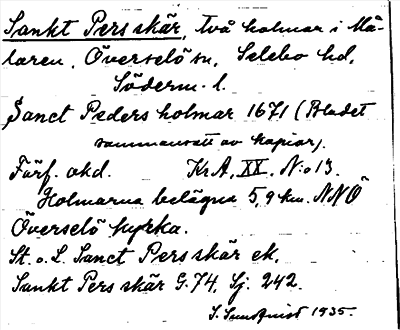 Sankt Pers skär, två holmar i Mä-
laren, Överselö sn, Selebo hd,
Söderm. l.
Sanct Peders holmar 1671 (Bladet
sammansatt av kopior).
Förf. okd. Kr.A, XX. N:o 13.
Holmarna belägna 5,9 km. NNÖ
Överselö kyrka.
St. o. L. Sanct Pers skär ek,
Sankt Pers skär G. 74, Sj. 242.
S. Sundquist 1935.